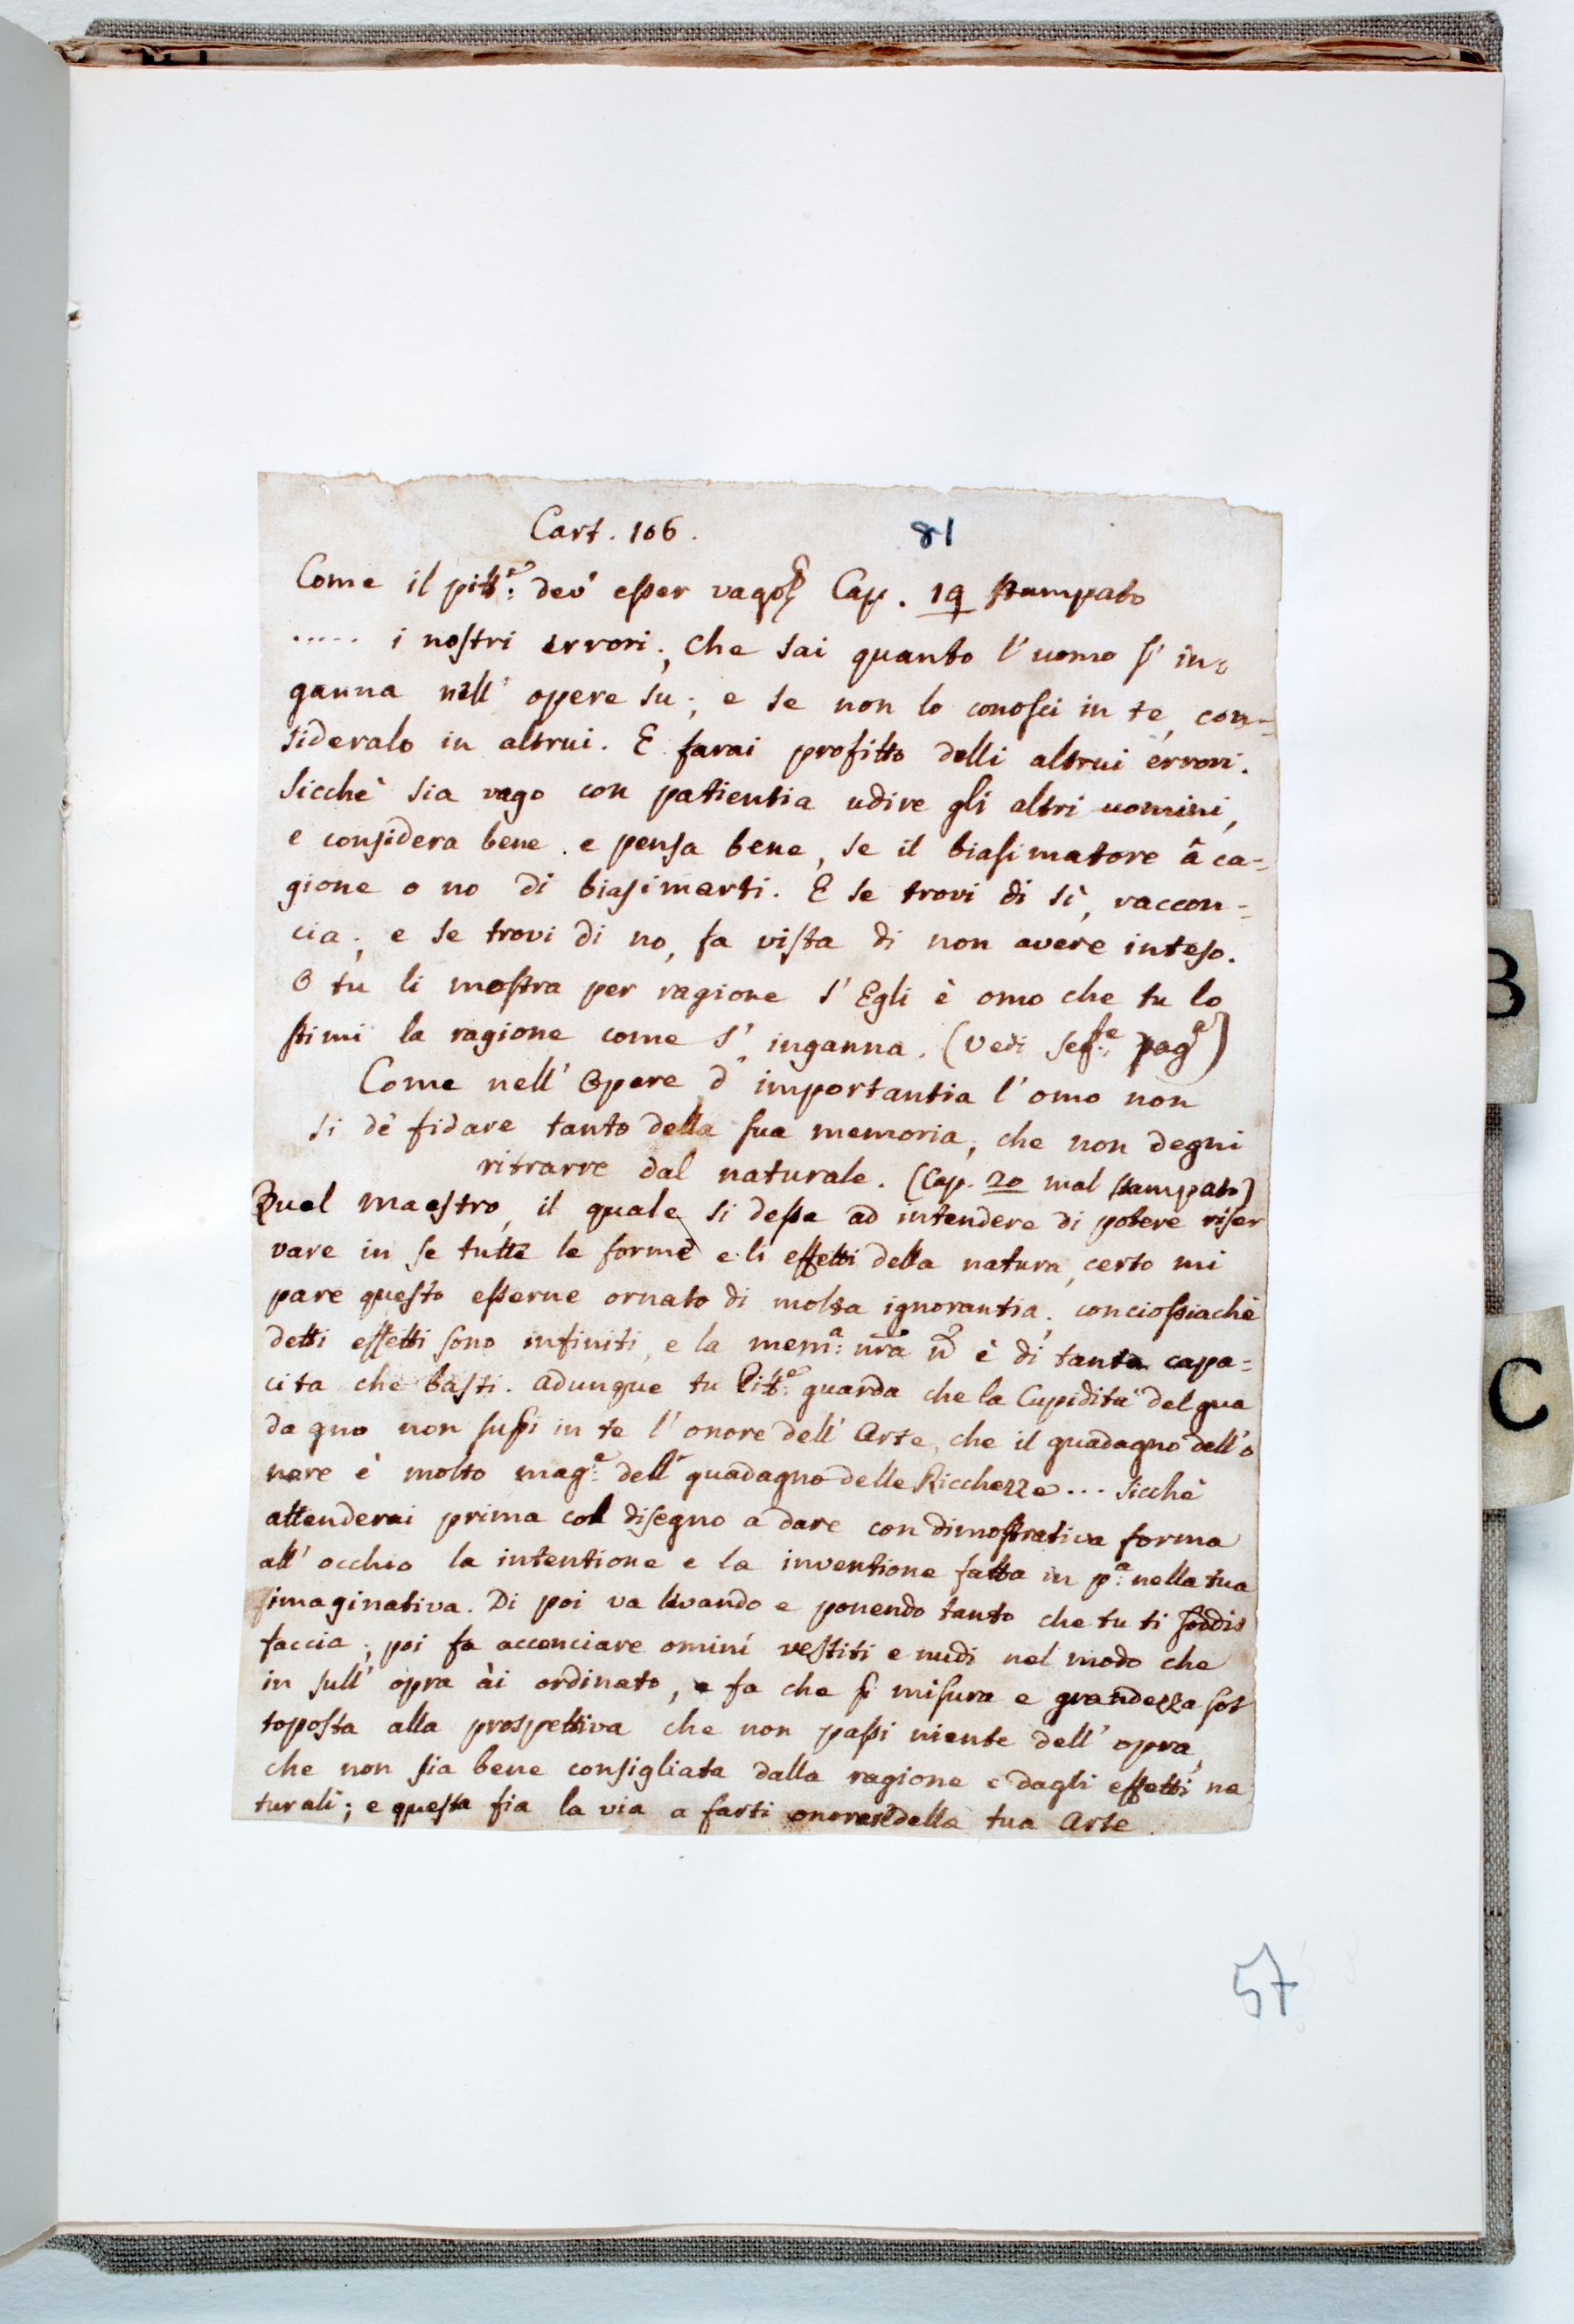 Cart. 106.
81
Come il pitt.e deé esser vago &c. Cap. 19 stampato
..... i nostri errori; che sai quanto l'uomo s' in-
ganna nell' opere su; e se non lo conosci in te, con-
sideralo in altrui. E farai profitto delli altrui errori.
Sicchè sia vago con patientia udire gli altri uomini,
e considera bene. e pensa bene, se il biasimatore â ca-
gione o no di biasimarti. E se trovi di sì, raccon-
cia; e se trovi di no, fa vista di non avere inteso.
O tu li mostra per ragione s' Egli è omo che tu lo
stimi la ragione come s' inganna. (Vedi seg.te pag.a)
Come nell' Opere d' importantia l' omo non
si dè fidare tanto della sua memoria, che non degni
ritrarre dal naturale. (Cap. 20 mal stampato)
Quel maestro, il quale si desse ad intendere di potere riser
vare in se tutte le forme e li effetti della natura, certo mi
pare questo esserne ornato di molta ignorantia; conciossiachè
detti effetti sono infiniti, e la mem.a nrã ñ è di tanta capa-
cita che basti. adunque tu Pitt.e guarda che la Cupidità del gua
dagno non supi in te l' onore dell' Arte, che il guadagno dell' o
nore è molto mag.e dell' guadagno delle Ricchezze... Sicchè
attenderai prima col disegno a dare con dimostrativa forma
all' occhio la intentione e la inventione fatta in p.a nella tua
imaginativa. Di poi va levando e ponendo tanto che tu ti soddis
faccia; poi fa acconciare omini vestiti e nudi nel modo che
in sull' opra ài ordinato, e fa che p misura e grandezza sot
toposta alla prospettiva che non passi niente dell' opra,
che non sia bene consigliata dalla ragione e dagli effetti na
turali; e questa fia la via a farti onorare della tua Arte.
57
B
C